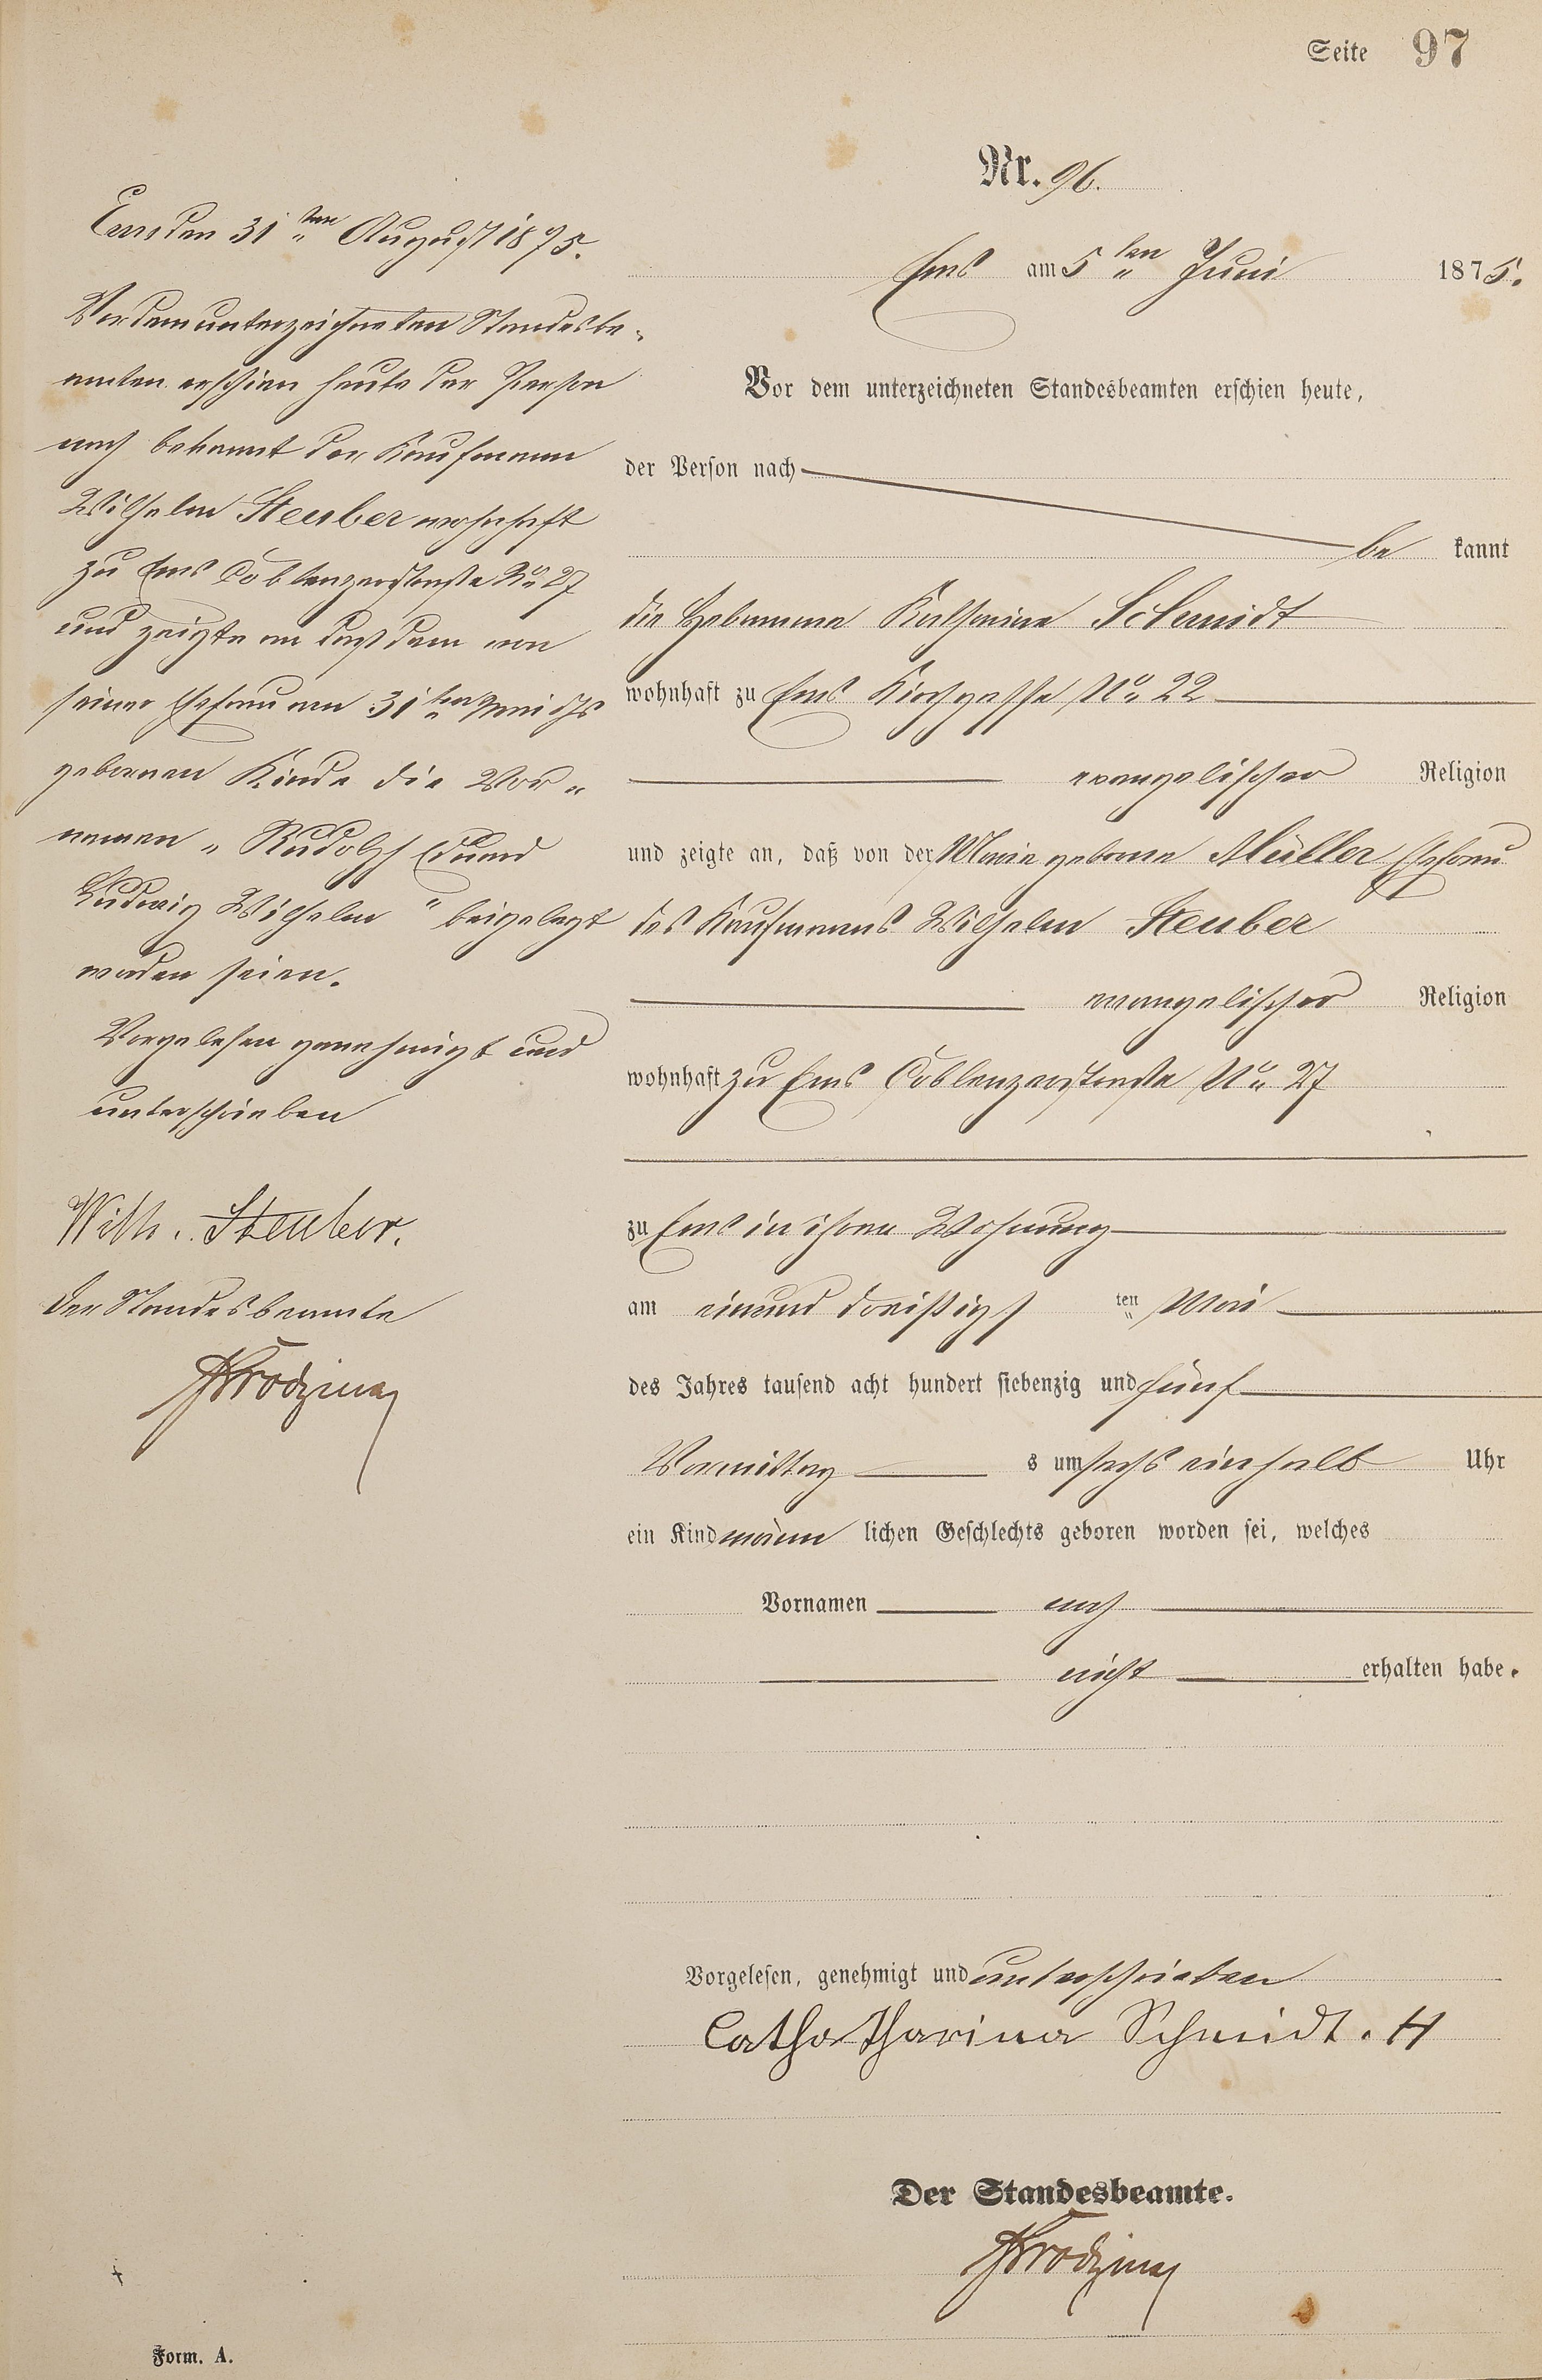 Seite 97
Nr. 96.
Ems am 5ten Juni 1875.
Vor dem unterzeichneten Standesbeamten erschien heute,
der Person nach
be kannt
die Hebamme Katharina Schmidt
wohnhaft zu Ems Kirchgasse No 22
evangelischer Religion
und zeigte an, daß von der Maria geborne Müller Ehefrau
des Kaufmanns Wilhelm Steuber
evangelischer Religion
wohnhaft zu Ems Coblenzerstraße No 27
zu Ems in ihrer Wohnung
am einund dreißigs ten Mai
des Jahres tausend acht hundert siebenzig und fünf
Vormittag s um sechs einhalb Uhr
ein Kind männ lichen Geschlechts geboren worden sei, welches
Vornamen noch
nicht erhalten habe.
Vorgelesen, genehmigt und unterschrieben
Cathatharina Schmidt. H
Der Standesbeamte.
Ems den 31ten August 1875.
Vor dem unterzeichneten Standesbe-
amten erschien heute der Person
nach bekannt der Kaufmann
Wilhelm Steuber wohnhaft
zu Ems Coblenzerstraße No 27
und zeigte an daß dem von
seiner Ehefrau am 31ten Mai ds Js
gebornen Kinde die Vor-
namen „Rudolph Eduard
Ludwig Wilhelm" beigelegt
worden seien.
Vorgelesen genehmigt und
unterschrieben
Wilh. Steuber.
Der Standesbeamte
Form. A.